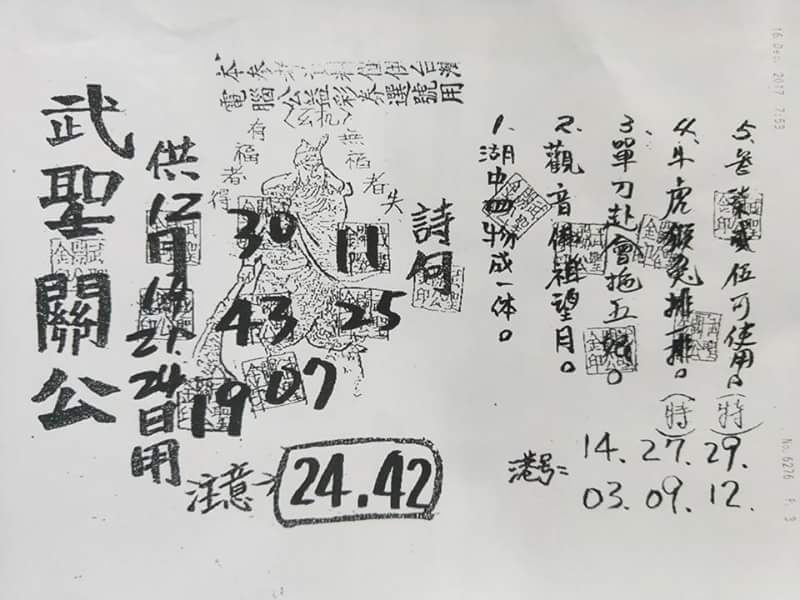 16 Dec. 2017 7:53
電腦公益彩券選號用
有福者得
無福者失
武聖關公
供12月
21.
24日用
30 11
43 25
19 07
注意→ 24.42
詩句
1.湖中四物成一体。
2.觀音佛祖望月。
3.單刀赴會拖五娘。
4.牛虎猴兔排一排。(特)
可使用。(特)
港号=
14. 27. 29.
03. 09. 12.
No.6276 P. 3